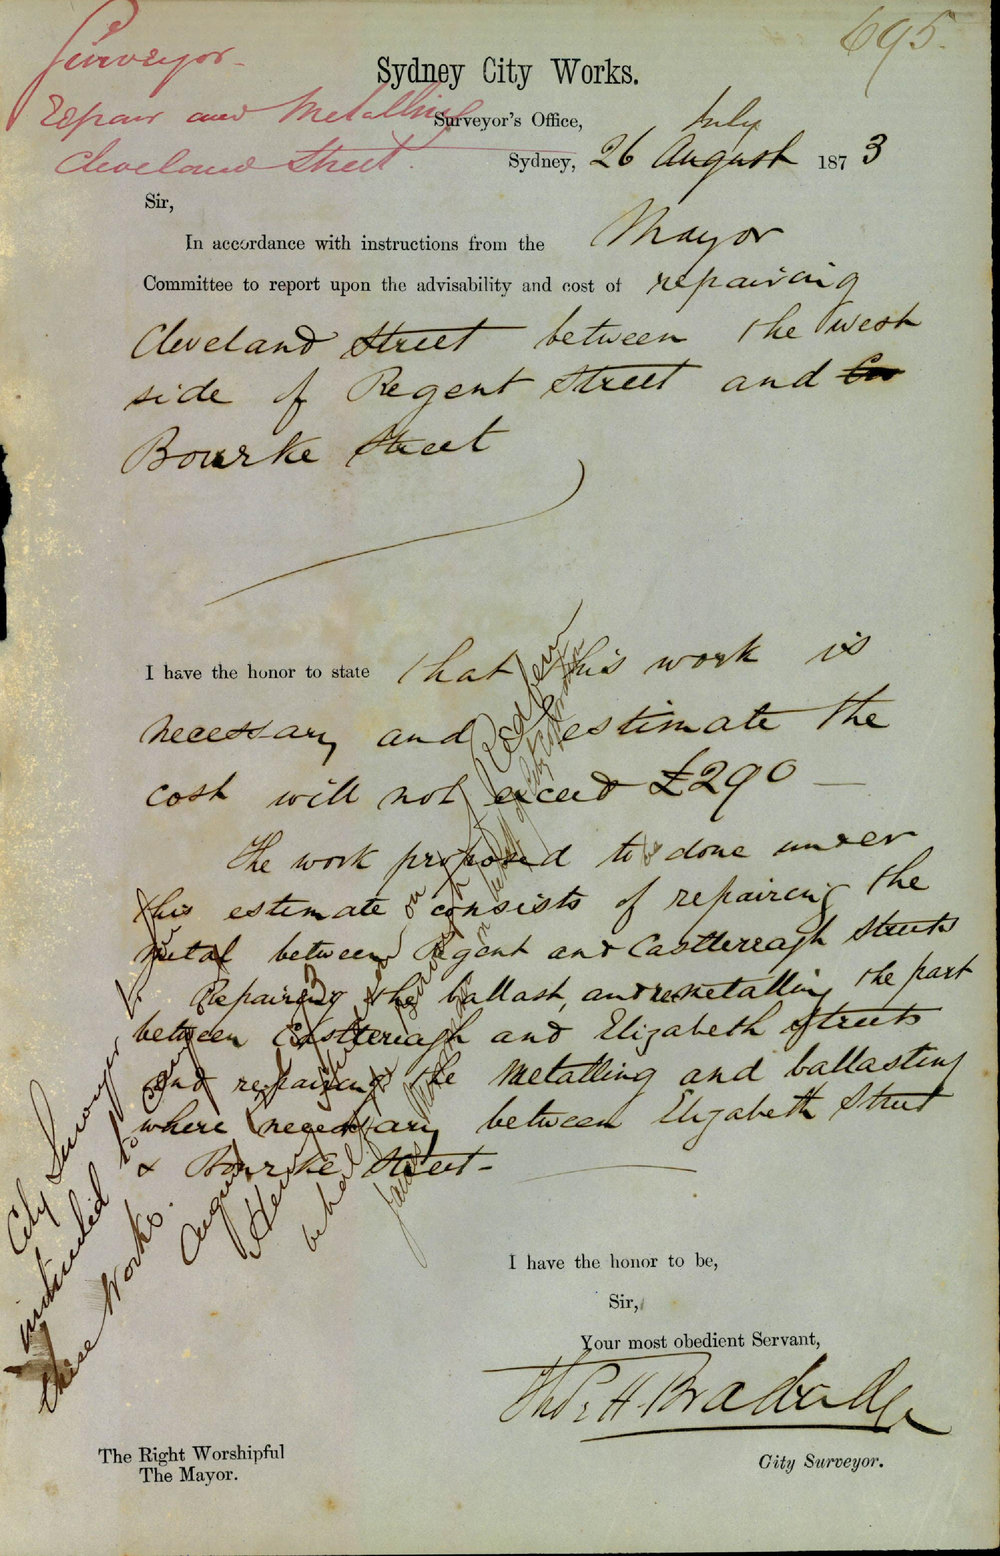 695.
Surveyor -
Repair and Metalling
Cleveland Street.
Sydney City Works.
Surveyor's Office,
July
Sydney, 26 August 1873
Sir,
In accordance with instructions from the Mayor
Committee to report upon the advisability and cost of repairing
Cleveland Street between the West
side of Regent Street and
Bourke Street
I have the honor to state that this work is
necessary and I estimate the
cost will not exceed £290 —
The work proposed to be done under
this estimate consists of repairing the
metal between Regent and Castlereagh Streets
Repairing the ballast, and remetalling the part
between Castlereagh and Elizabeth Streets
and repairing the Metalling and ballasting
where necessary between Elizabeth Street
& Bourke Street -
City Surveyor to be
instructed to carry out
these Works.
August
behalf of Borough of Redfern
I have the honor to be,
Sir,
Your most obedient Servant,
Thos. H. Bradridge
City Surveyor.
The Right Worshipful
The Mayor.